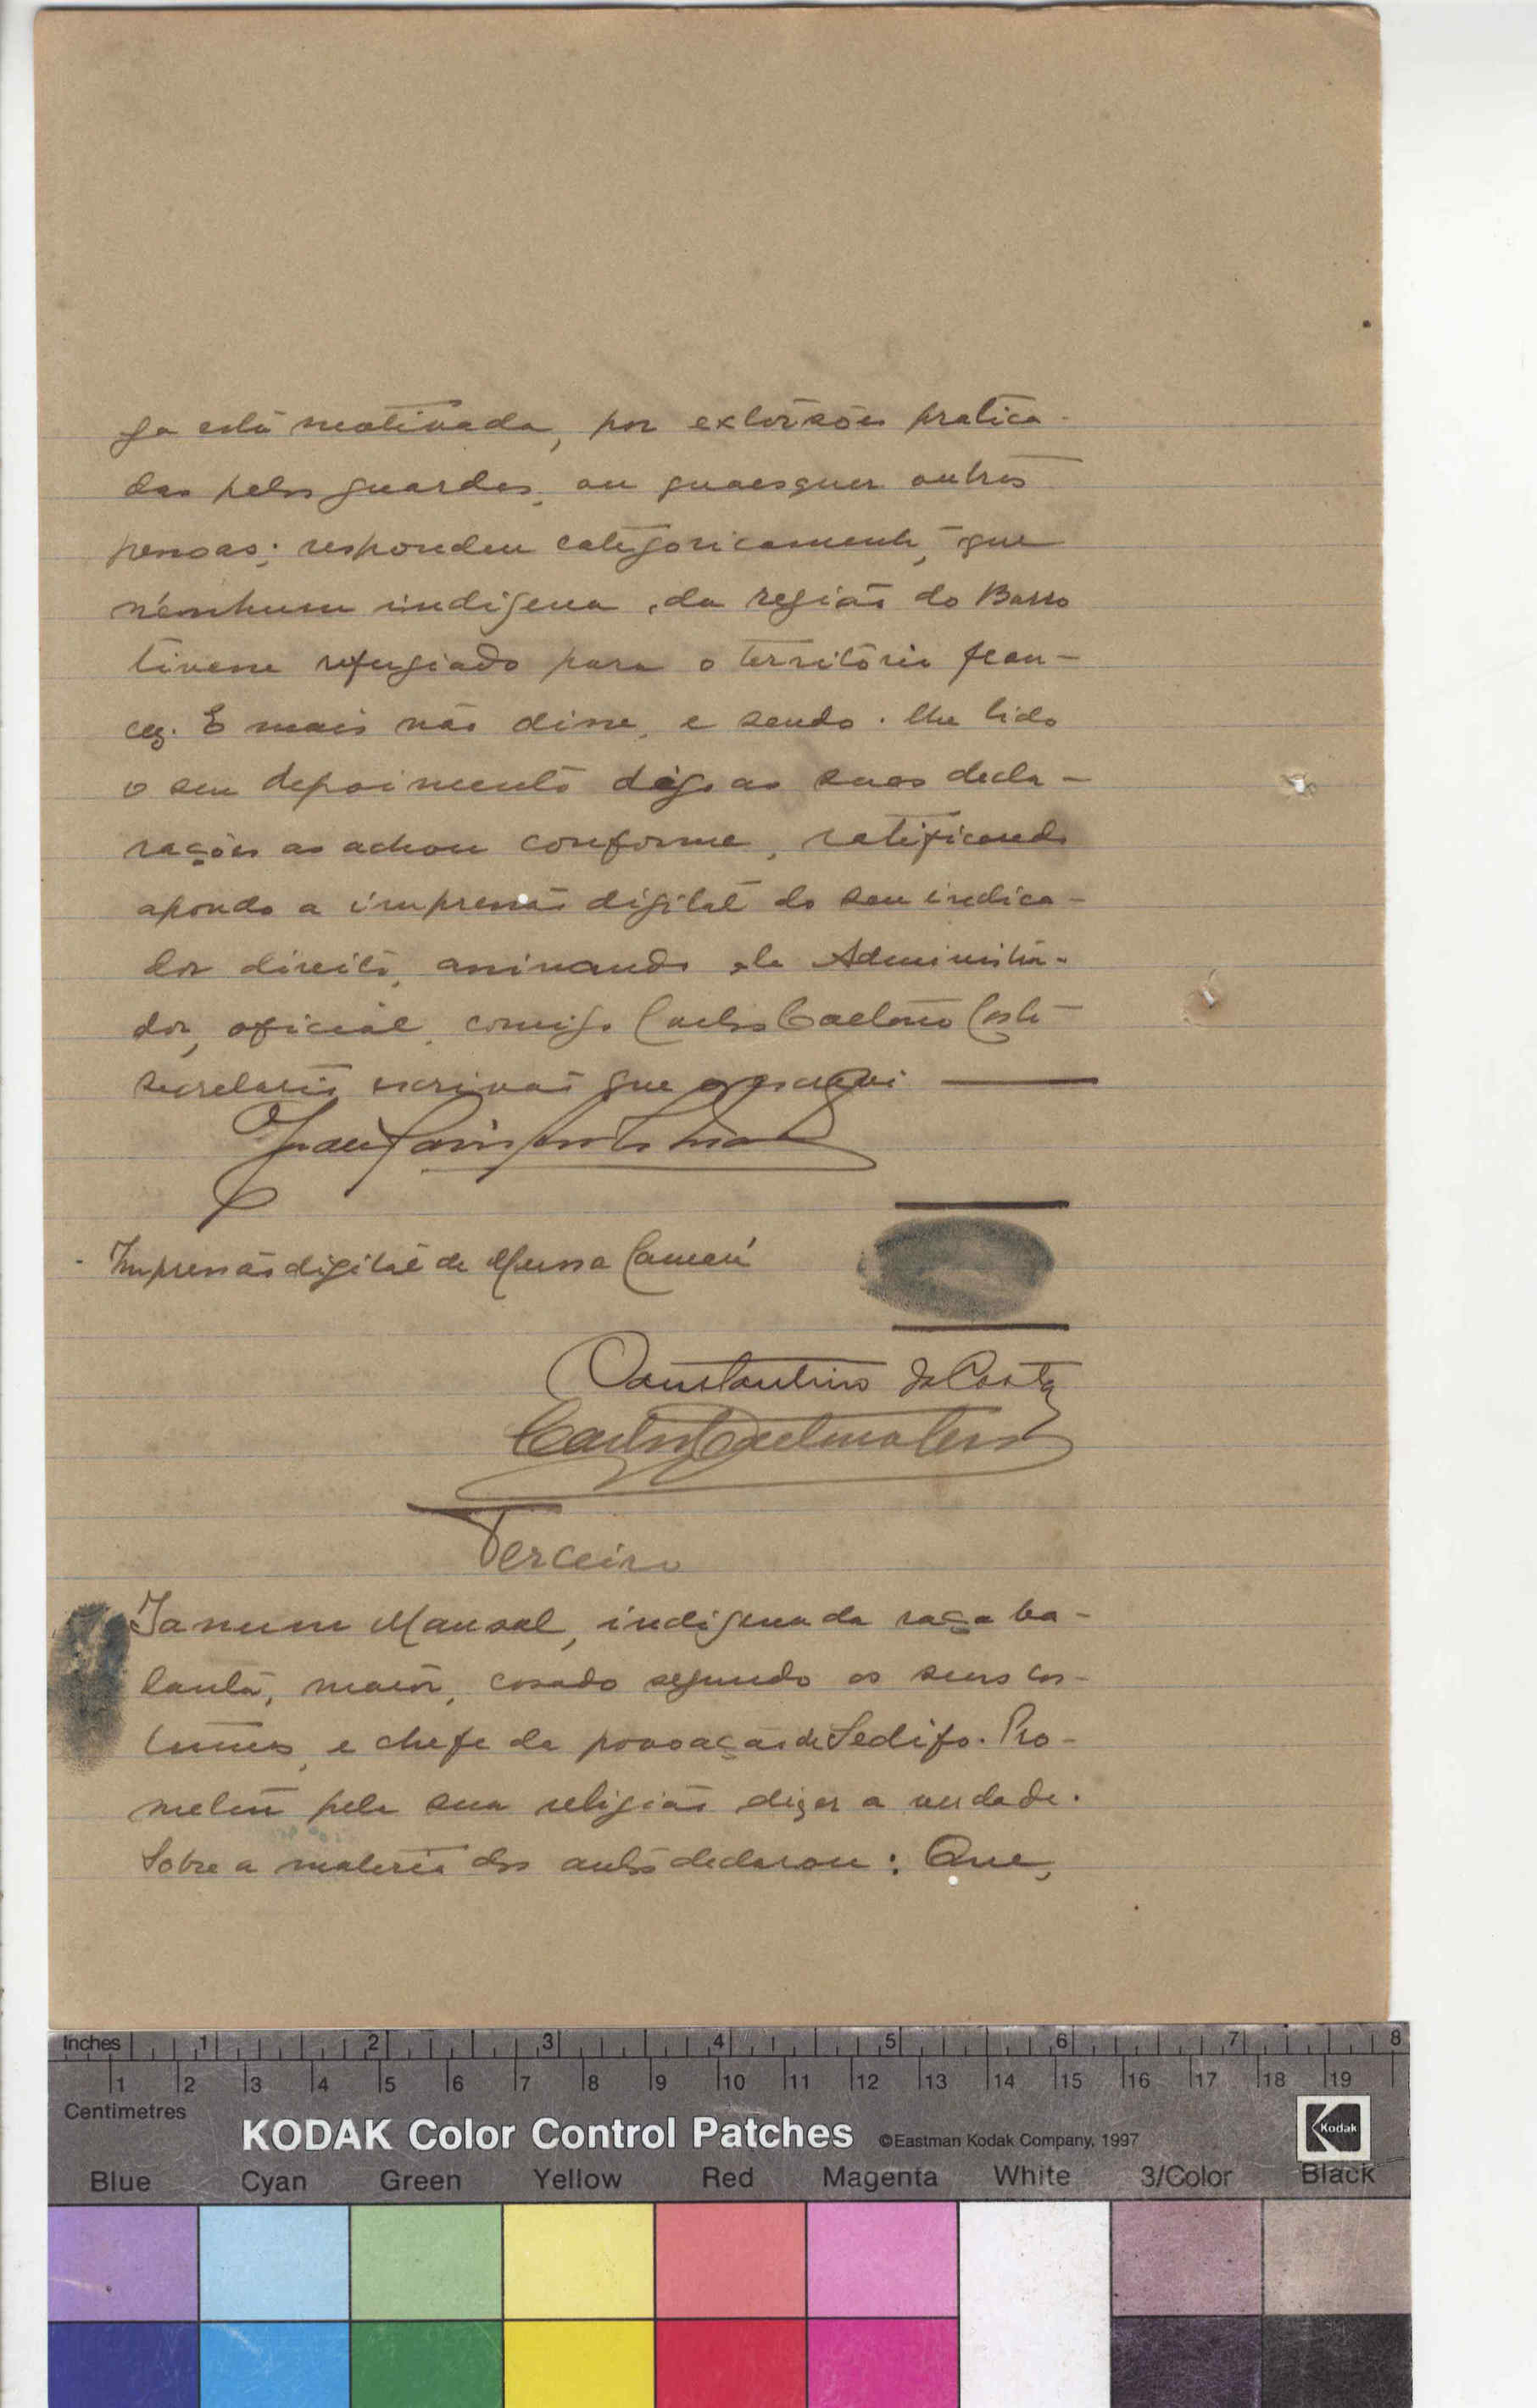 ga está motivada, por extorsões pratica-
das pelos guardas, ou quaesquer outros
pessoas; respondeu categoricamente, que
nenhum indigena, da região do Barro
tivesse refugiado para o território fran-
cez. E mais não disse, e sendo-lhe lido
o seu depoimento digo as suas decla-
rações as achou conforme, ratificando
apondo a impressão digital do seu indica-
dor direito, assinando ele Administra-
dor, oficial, comigo Carlos Caetano Costa
secretario escrivão que o escrevi
Impressão digital de Mussa Camará
Constantino da Costa
Carlos Caetano Costa
Terceiro
Mansal, indigena da raça ba-
lanta, maior, casado segundo os seus cos-
tumes, e chefe da povoação de Sedifo. Pro-
meteu pela sua religião dizer a verdade.
Sobre a materia dos autos declarou: Que,
Inches 1 2 3 4 5 6 7 8
1 2 3 4 5 6 7 8 9 10 11 12 13 14 15 16 17 18 19
Centimetres
KODAK Color Control Patches ©Eastman Kodak Company, 1997 Kodak
Blue Cyan Green Yellow Red Magenta White 3/Color Black